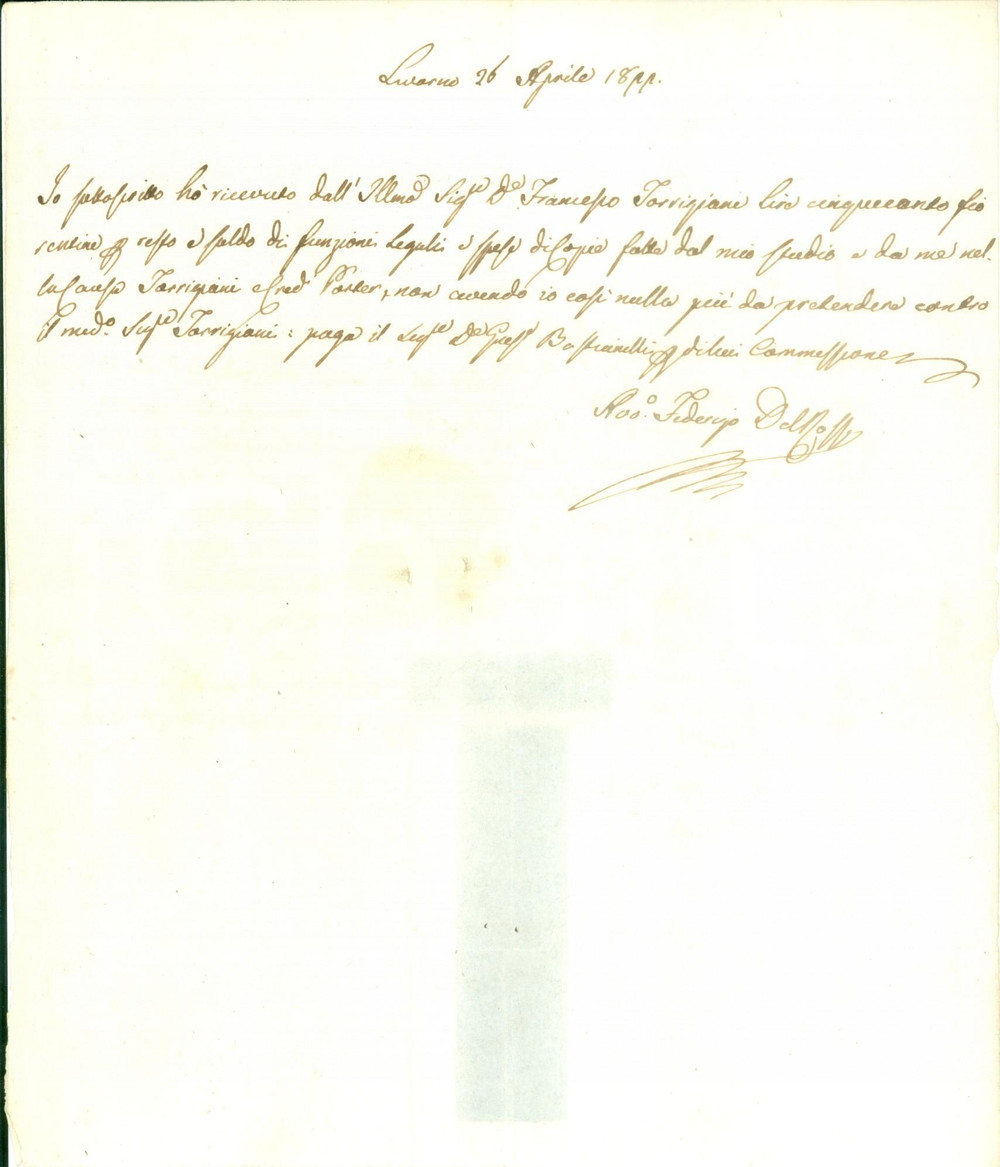 Livorno 26 Aprile 1822.
Io sottoscritto hò ricevuto dall' Illmo Sigre De Francesco Torrigiani lire cinquecento fio
rentine p resto e saldo di funzioni Legali e spese di Copie fatte dal mio studio e da me nel-
la Causa Torrigiani e Cred Porter, non avendo io così nulla più da pretendere contro
il medo. Sigre Torrigiani: paga il Sigre De Bastianelli p di lui Commessione
Avo. Federigo Del Rosso